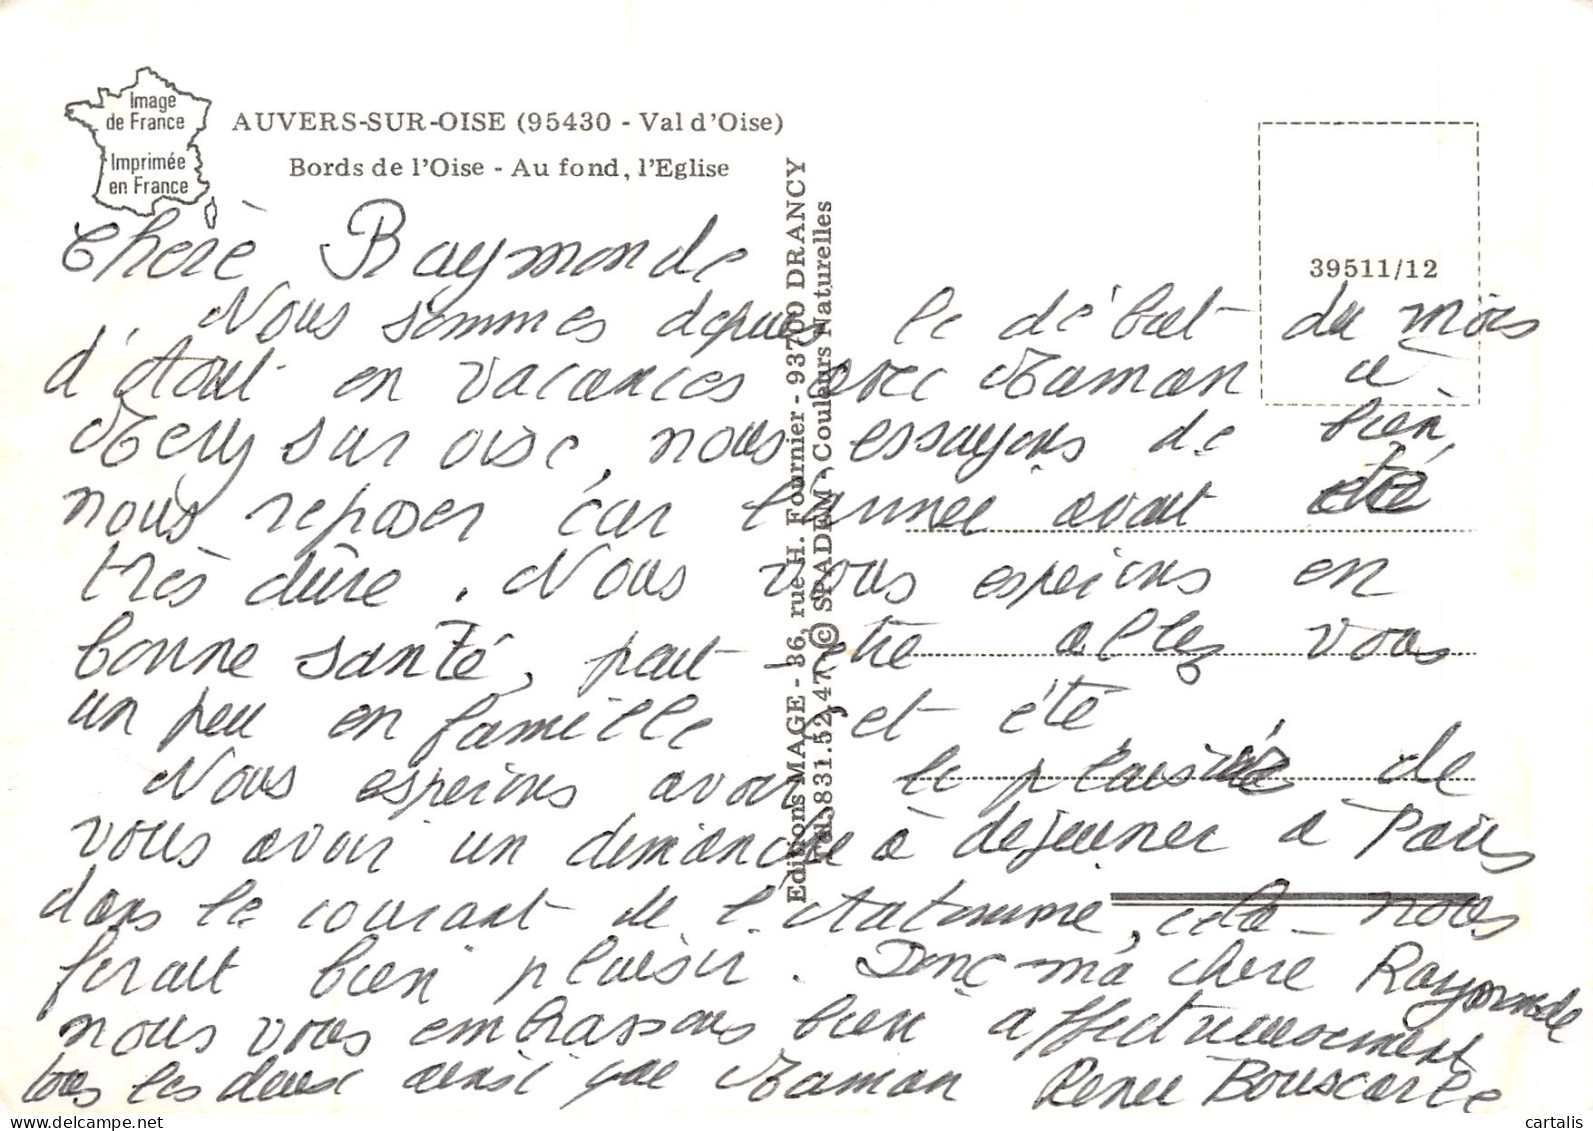 Image
de France
Imprimée
en France
AUVERS-SUR-OISE (95430 - Val d'Oise)
Bords de l'Oise - Au fond, l'Eglise
39511/12
Editions MAGE - 36, rue H. Fournier - 93700 DRANCY
Tél. 831.52.47 © SPADEM - Couleurs Naturelles
Chère Raymonde
Nous sommes depuis le début du mois
d'Aout en vacances avec Maman a
Mery sur oise, nous essayons de bien
nous reposer car l'année avait été
très dûre. Nous vous espeions en
bonne santé, peut-etre allez vous
un peu en famille cet été
Nous espeions avoir le plaisir de
vous avoir un dimanche à dejeuner a Paris
dans le courant de l'Autonne, cela nous
ferait bien plaisir. Donc ma chere Raymonde
nous vous embrassons bien affectueusement
tous les deux ainsi que Maman Renee
cartalis